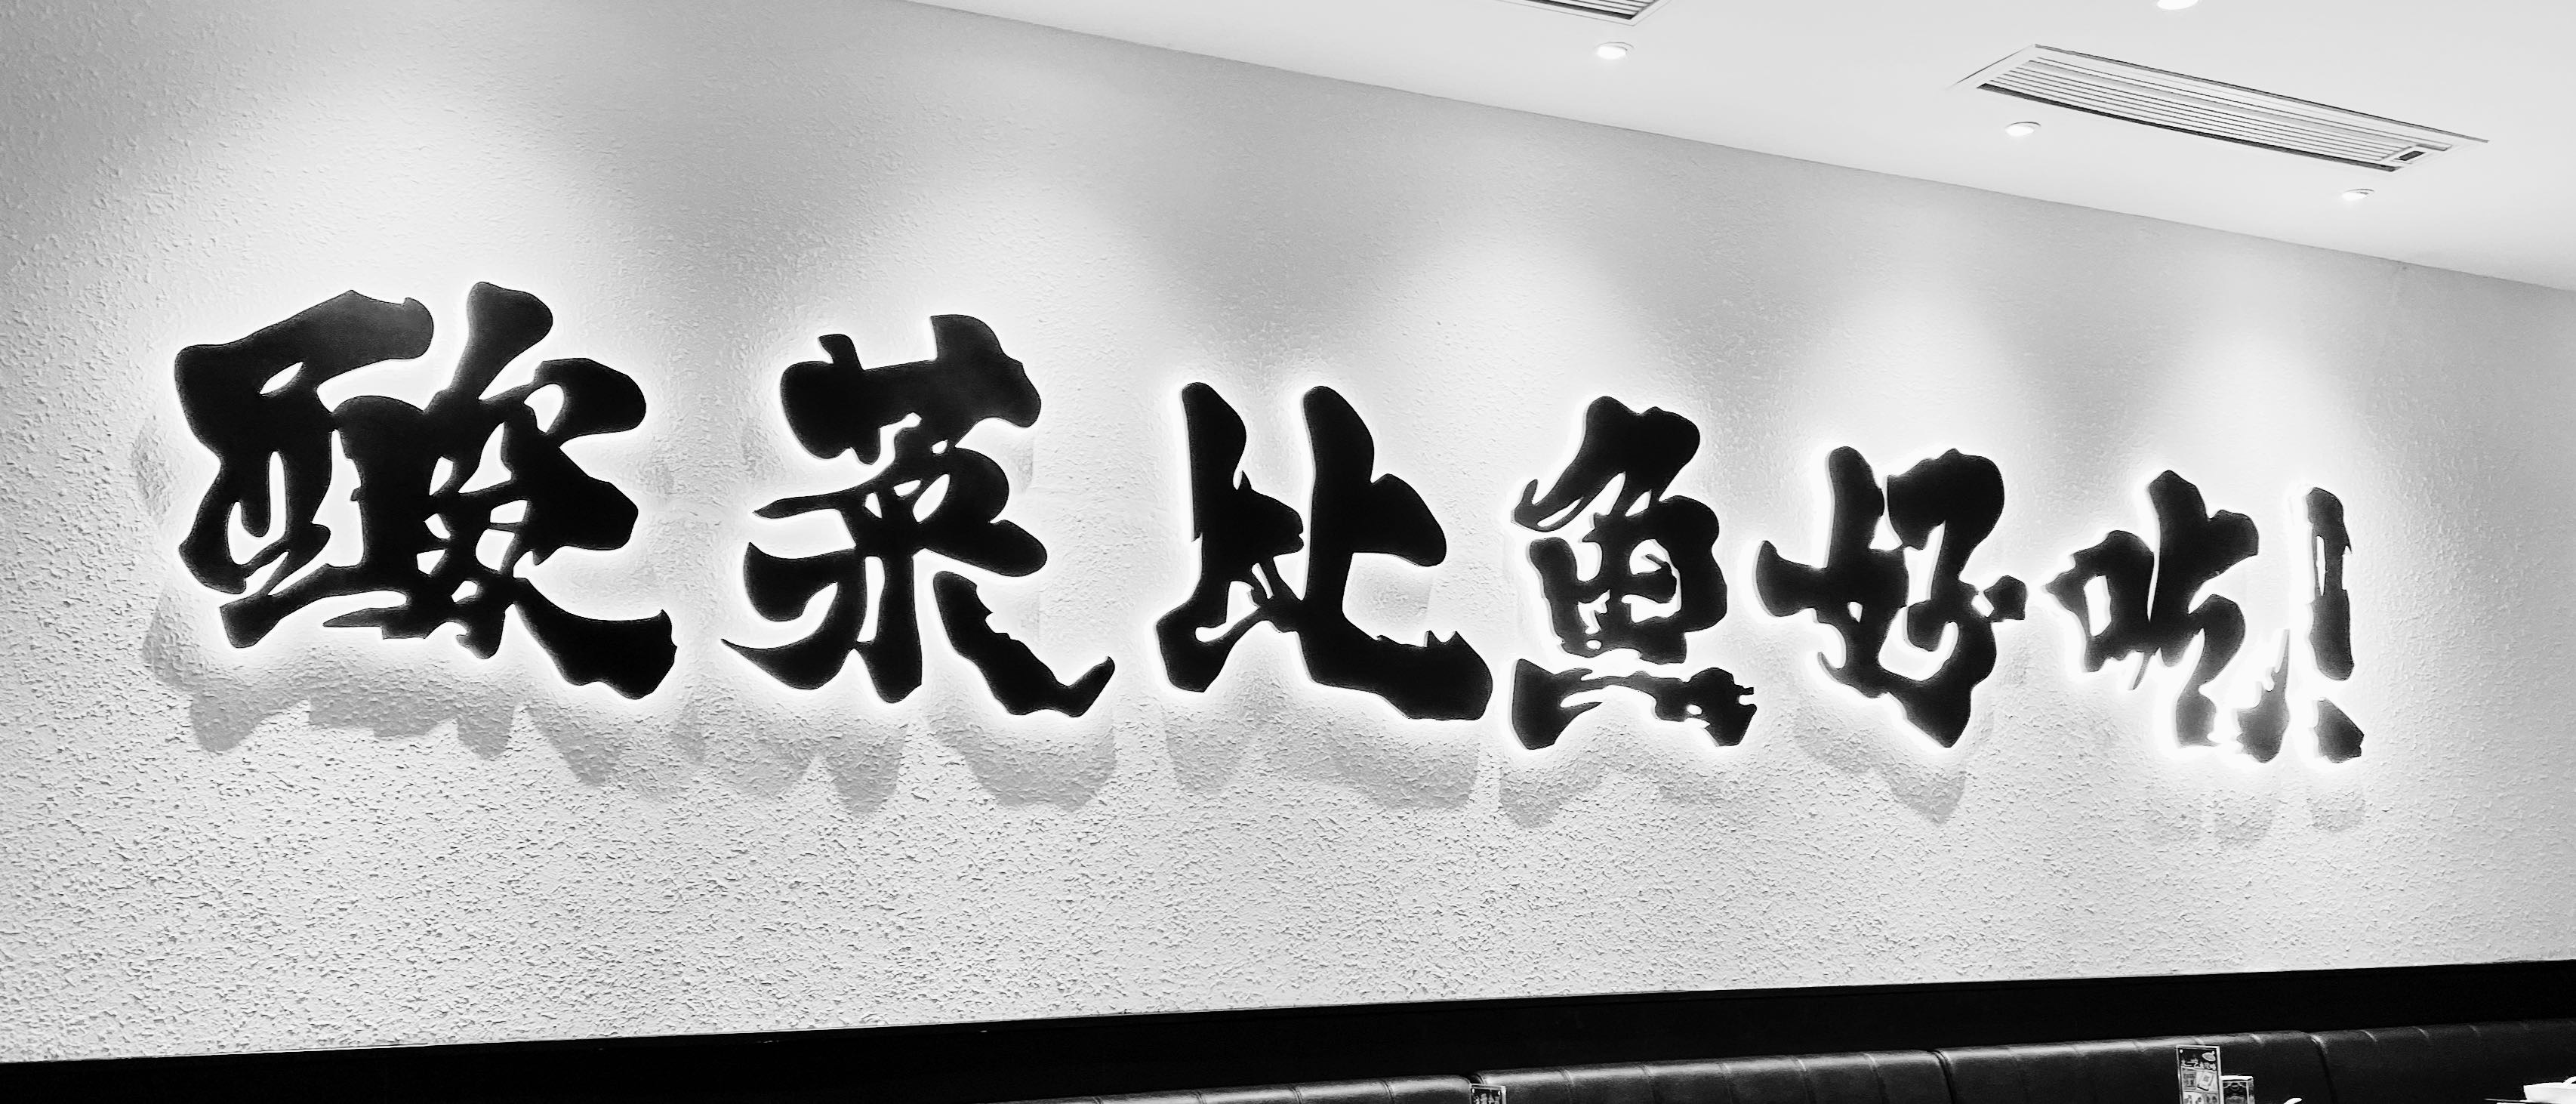 酸菜比魚好吃!